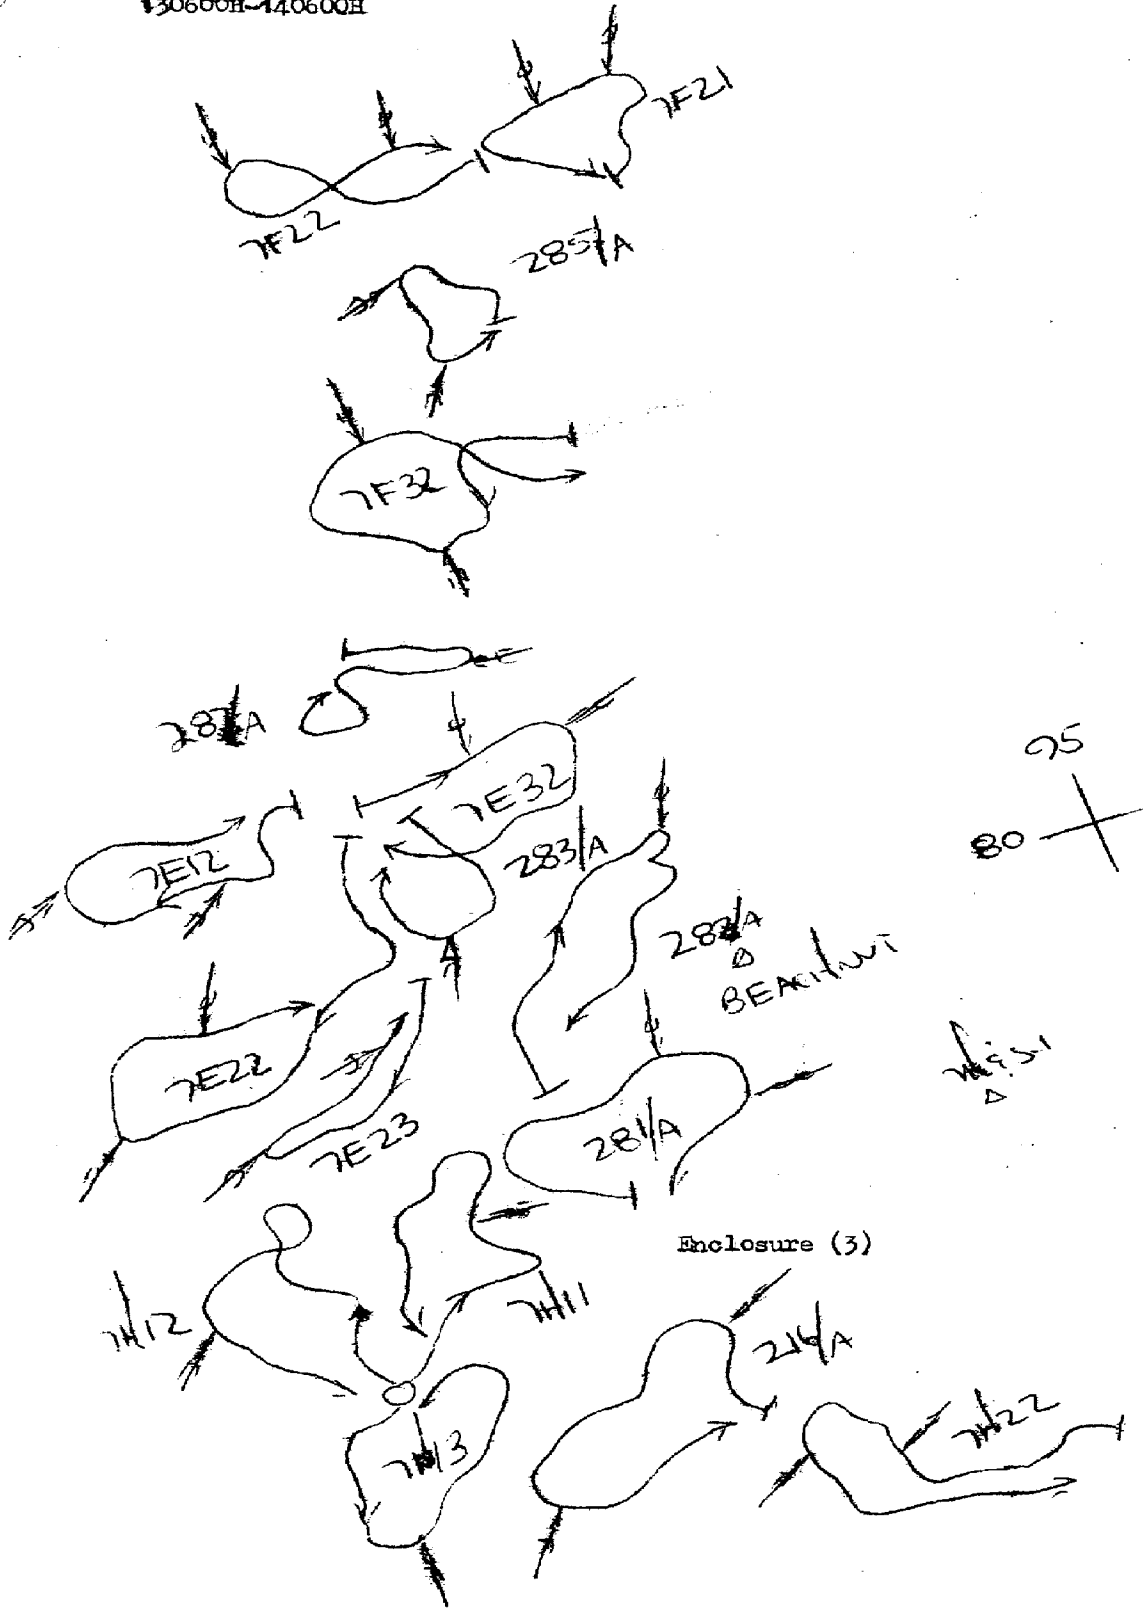 130600H-140600H
7F21
7F22
285/A
7F32
287/A
7E32
95
80
7E12
283/A
7E22
7E23
281/A
Enclosure (3)
7H12
7H11
216/A
7H22
7H13